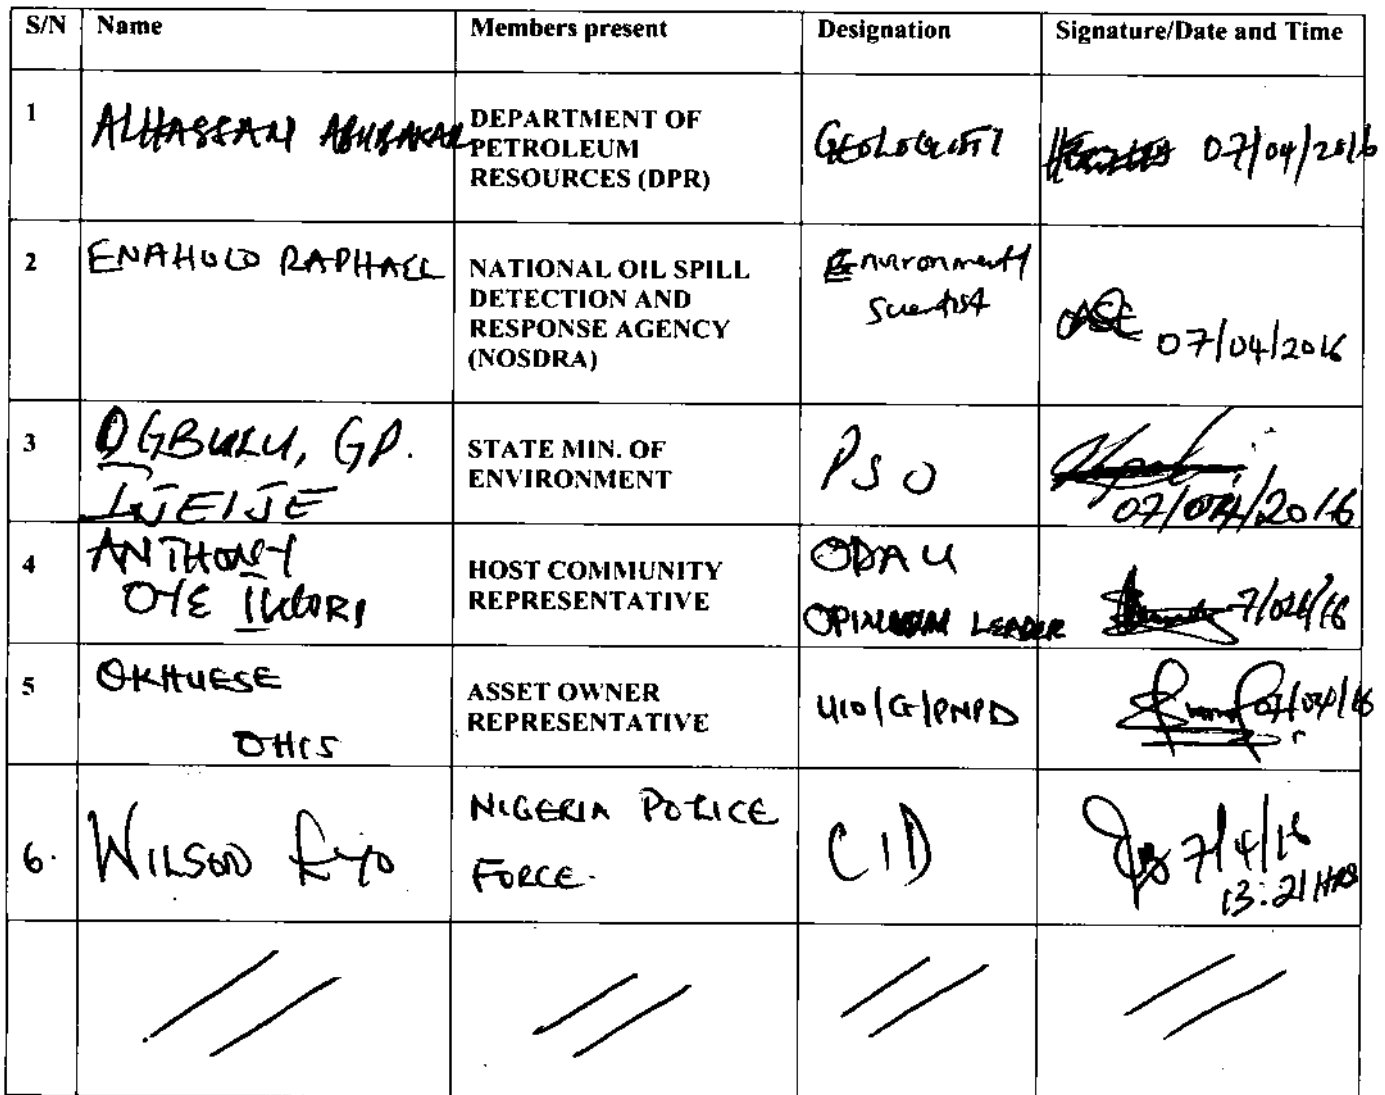 S/N Name Members present Designation Signature/Date and Time
1 ALHASSAN ABUBAKAR DEPARTMENT OF PETROLEUM RESOURCES (DPR) GEOLOGIST 07/04/2016
2 ENAHOLO RAPHAEL NATIONAL OIL SPILL DETECTION AND RESPONSE AGENCY (NOSDRA) Environment Scientist 07/04/2016
3 OGBULU, GP. STATE MIN. OF ENVIRONMENT PSO 07/04/2016
4 ANTHONY OYE HOST COMMUNITY REPRESENTATIVE ODAU OPINION LEADER 7/04/16
5 OKHUESE OHIS ASSET OWNER REPRESENTATIVE UIO/G/PNPD 07/04/16
6. WILSON NIGERIA POLICE FORCE. CID 7/4/16 13:21 HRS